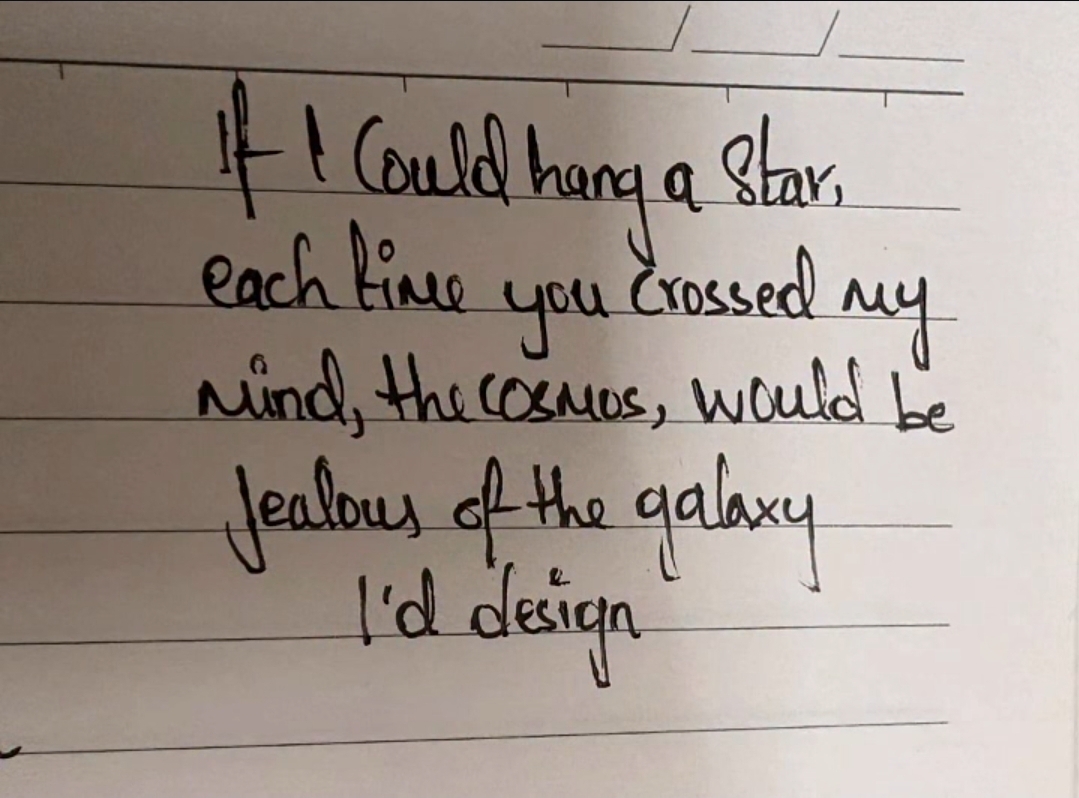 If I Could hang a Star,
each time you crossed my
mind, the cosmos, would be
Jealous of the galaxy
I'd design